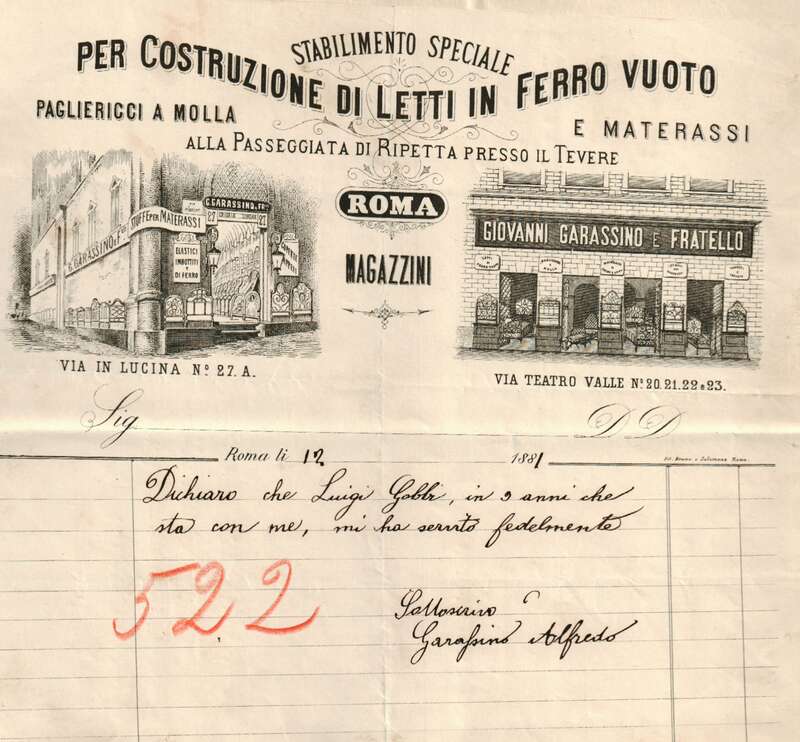 STABILIMENTO SPECIALE
PER COSTRUZIONE DI LETTI IN FERRO VUOTO
PAGLIERICCI A MOLLA
E MATERASSI
ALLA PASSEGGIATA DI RIPETTA PRESSO IL TEVERE
ROMA
MAGAZZINI
G. GARASSINO & F.
STOFFE PER MATERASSI
G. GARASSINO & F.
27
27
ELASTICI
IMBOTTITI
E
DI FERRO
VIA IN LUCINA Nº 27. A.
GIOVANNI GARASSINO E FRATELLO
VIA TEATRO VALLE Nº 20. 21. 22 e 23.
Sig
D D
Roma li 12 1881
Lit. Bruno e Salomone Roma.
Dichiaro che Luigi Gobbi, in 9 anni che
sta con me, mi ha servito fedelmente
522
Sottoscrivo
Garassino Alfredo